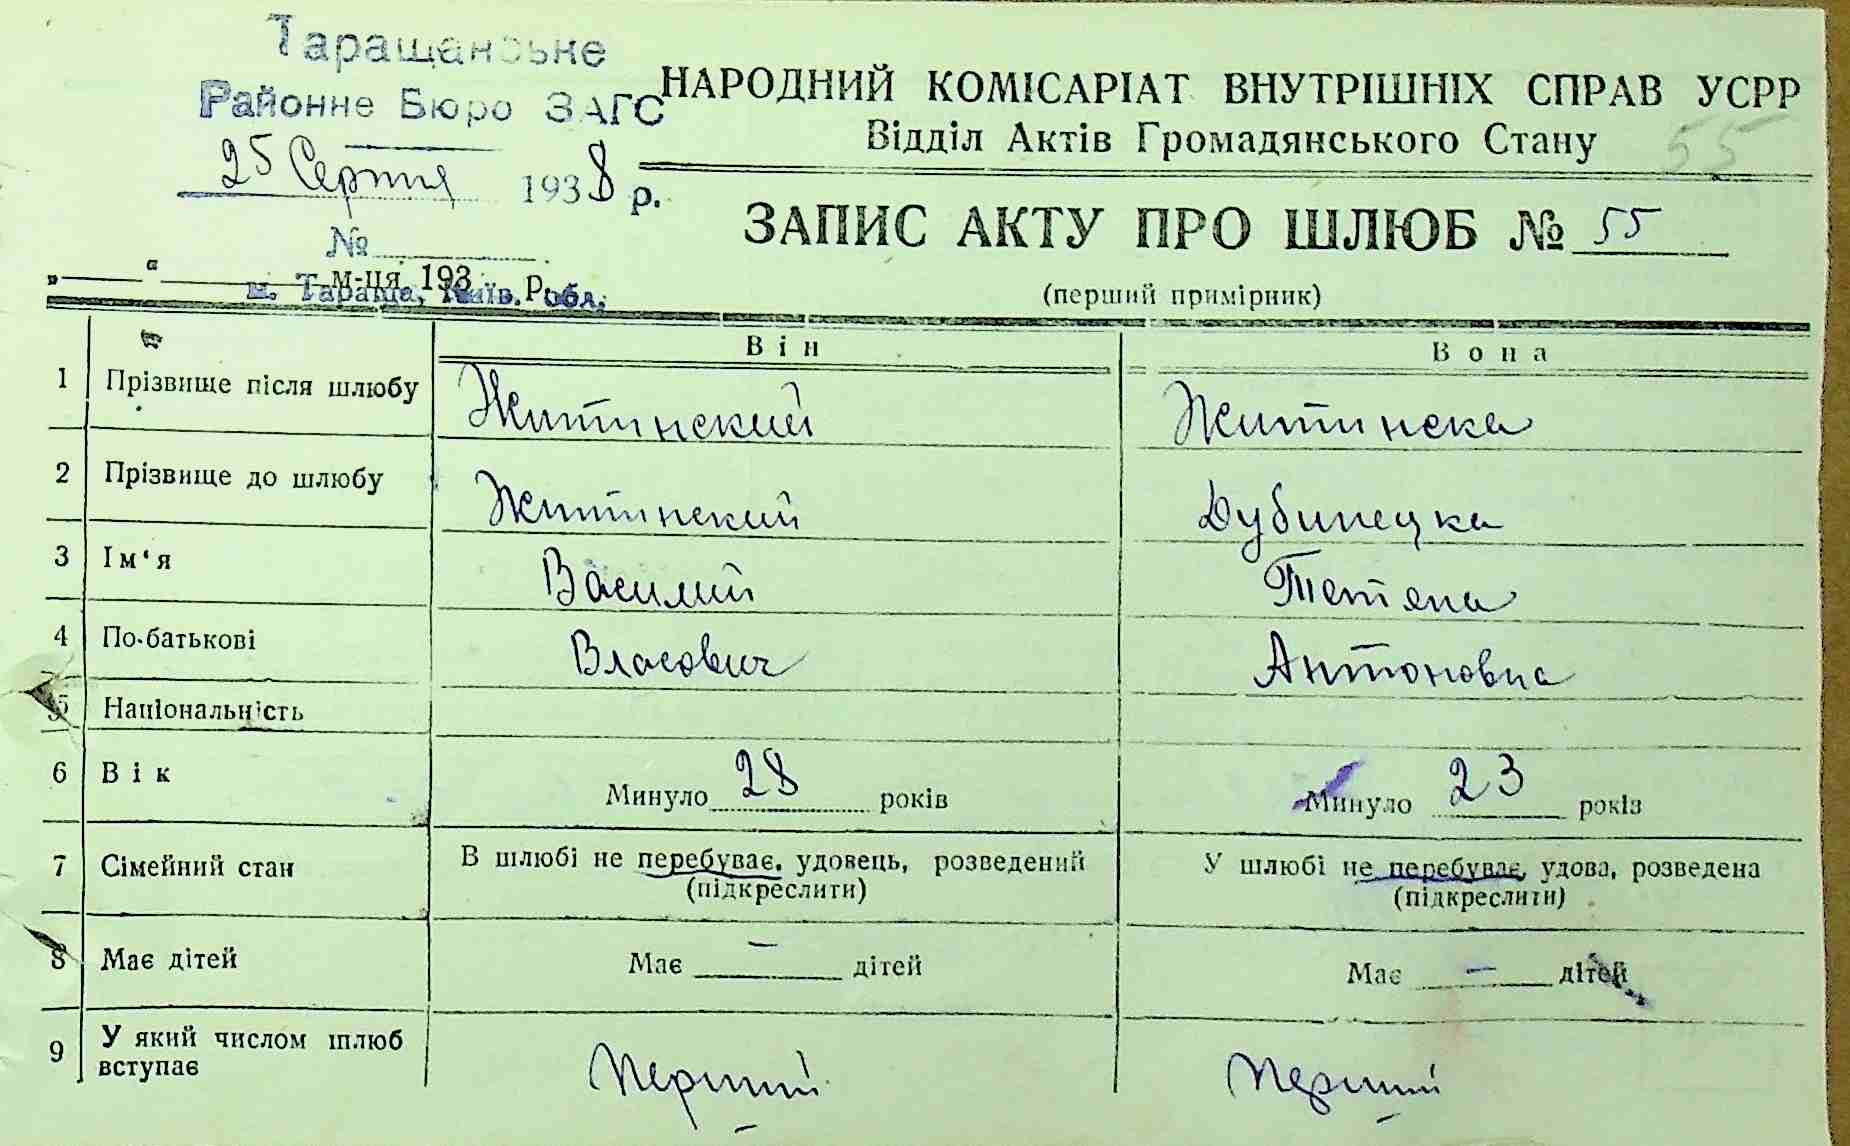 Таращанське
Районне Бюро ЗАГС
25 Серпня 1938 р.
№
„ “ м-ця 193 р.
м. Тараща, Київ. обл.
НАРОДНИЙ КОМІСАРІАТ ВНУТРІШНІХ СПРАВ УСРР
Відділ Актів Громадянського Стану
55
ЗАПИС АКТУ ПРО ШЛЮБ № 55
(перший примірник)
Він Вона
1 Прізвище після шлюбу Житинский Житинска
2 Прізвище до шлюбу Житинский Дубинецка
3 Ім‘я Василий Тетяна
4 По-батькові Власович Антоновна
5 Національність
6 Вік Минуло 28 років Минуло 23 років
7 Сімейний стан В шлюбі не перебуває, удовець, розведений У шлюбі не перебуває, удова, розведена
(підкреслити) (підкреслити)
8 Має дітей Має — дітей Має — дітей
9 У який числом шлюб
вступає Перший Перший